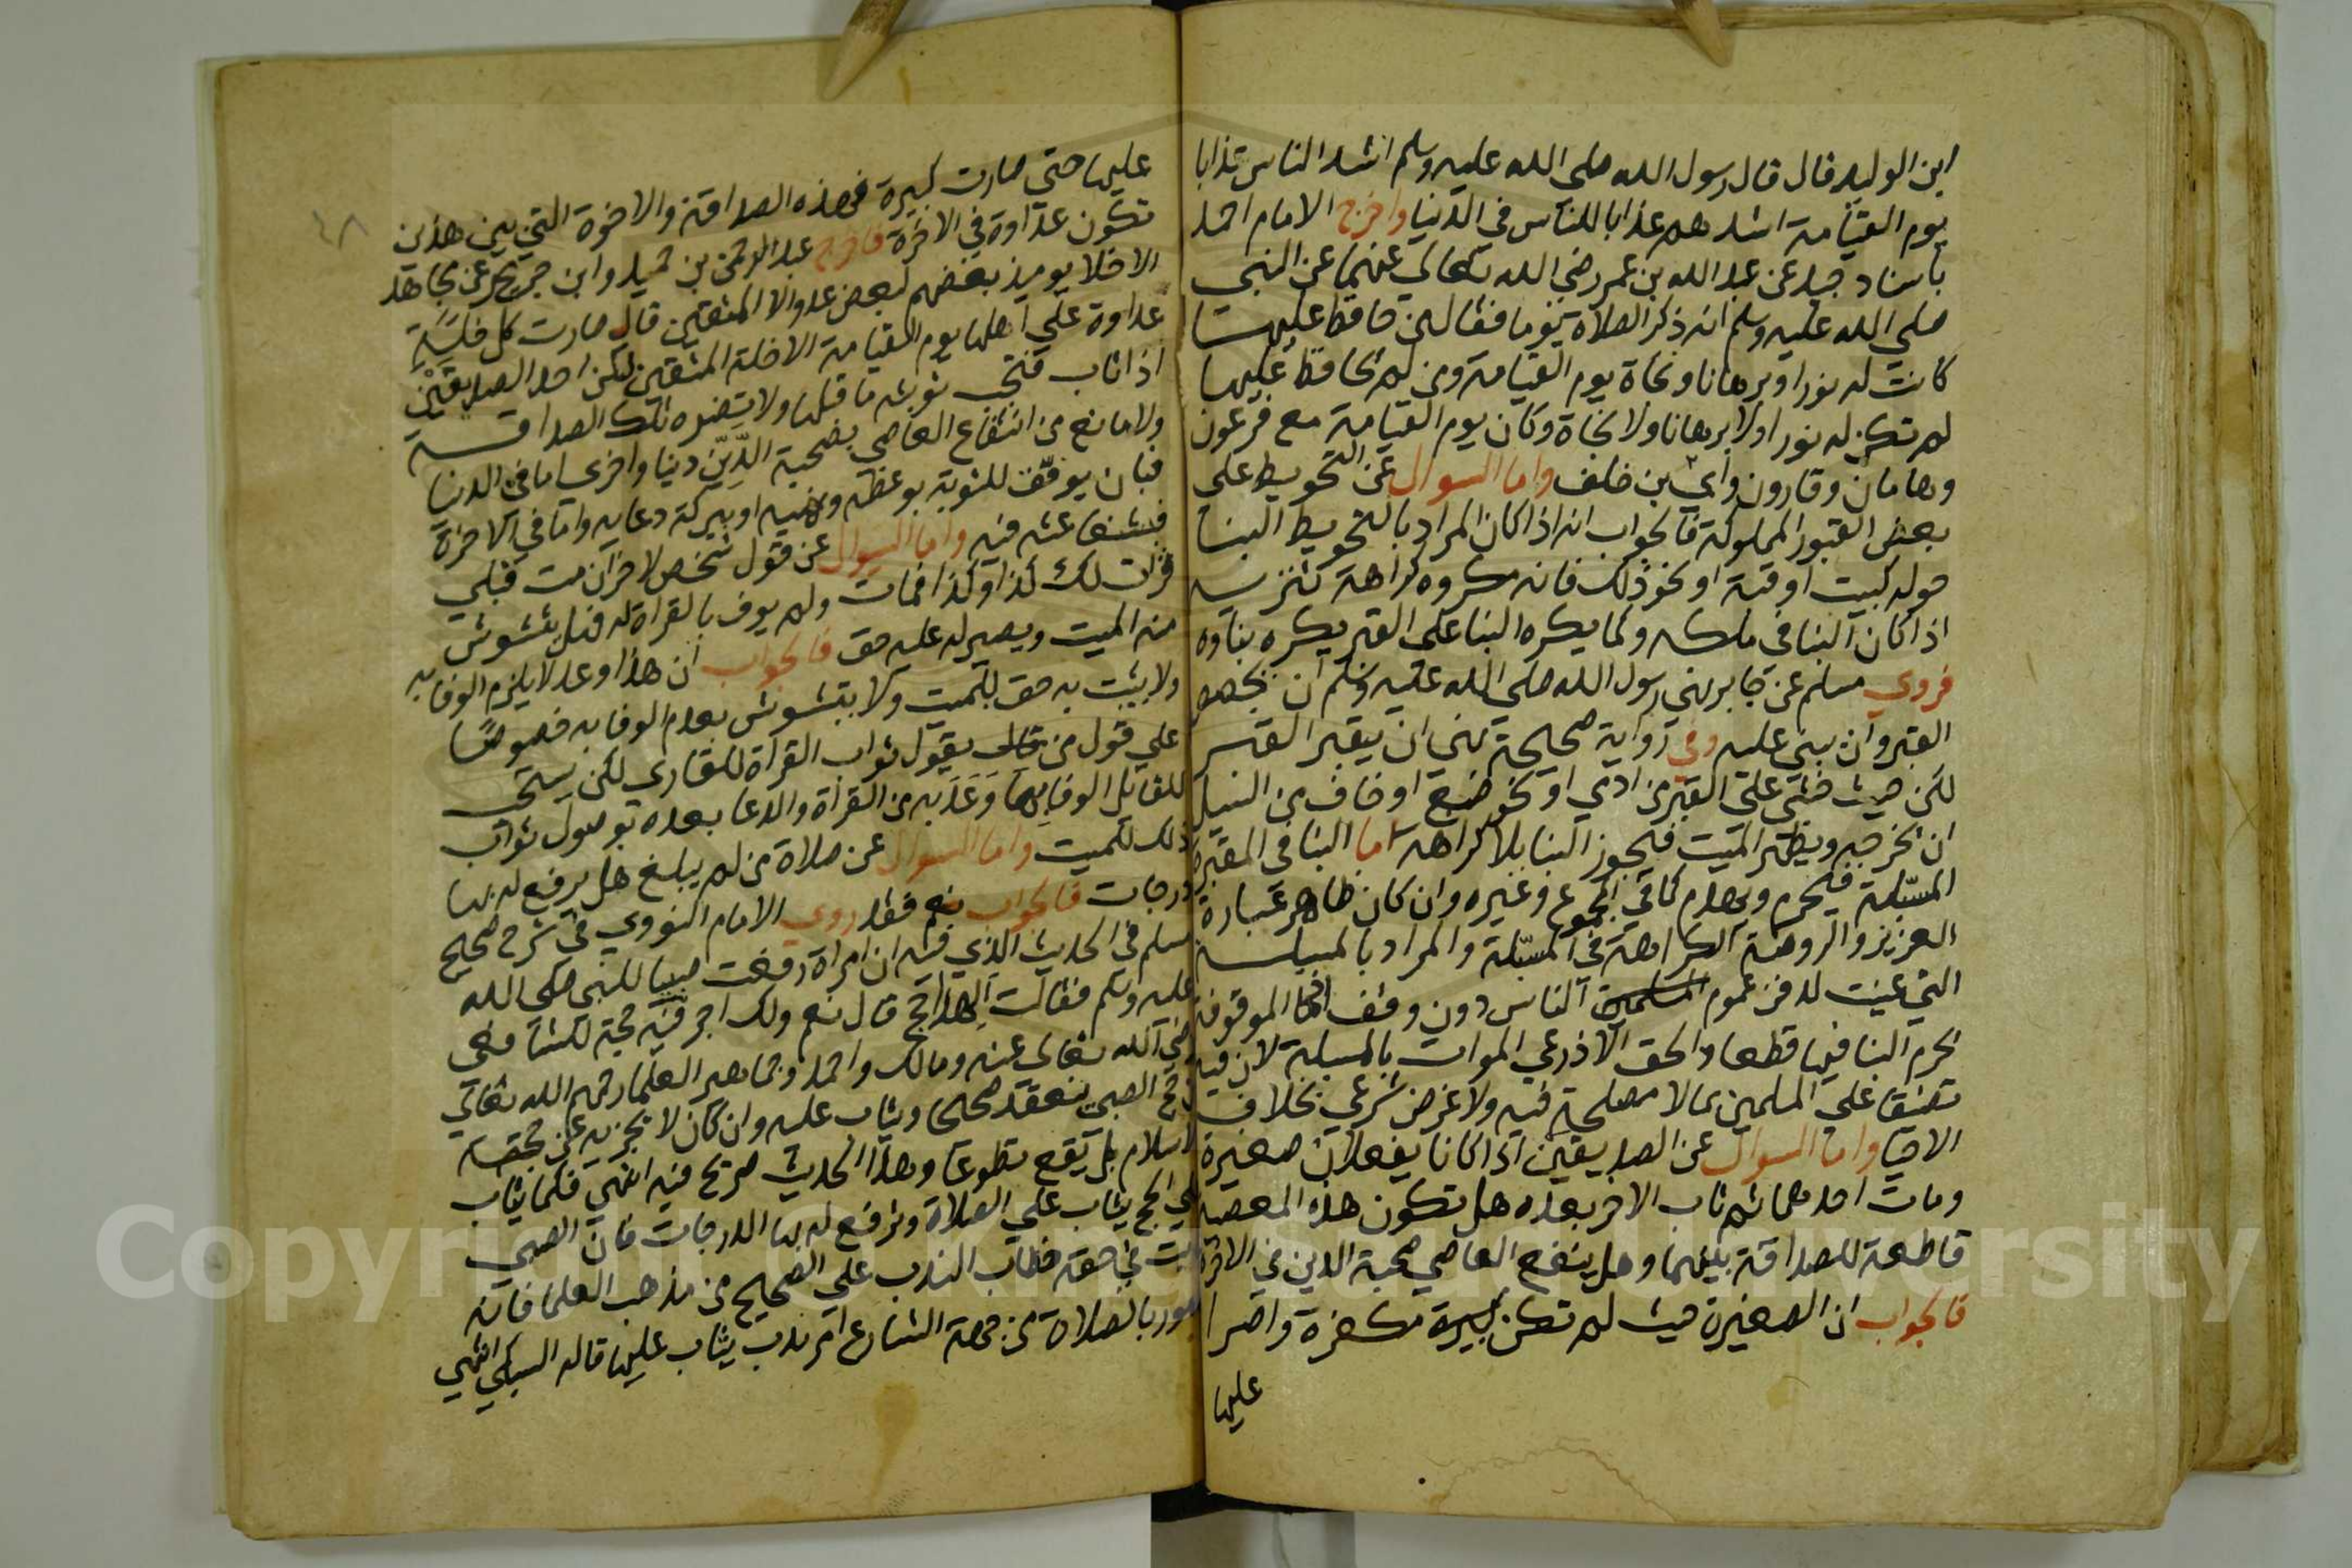 ابن الوليد قال قال رسول الله صلى الله عليه وسلم اشد الناس عذابا
يوم القيامة اشدهم عذابا للناس في الدنيا واخرج الامام احمد
باسناد جيد عن عبد الله بن عمر رضي الله تعالى عنهما عن النبي
صلى الله عليه وسلم انه ذكر الصلاة يوما فقال من حافظ عليها
كانت له نورا وبرهانا ونجاة يوم القيامة ومن لم يحافظ عليها
لم تكن له نورا ولا برهانا ولا نجاة وكان يوم القيامة مع فرعون
وهامان وقارون وابي بن خلف واما السوال عن التحويط على
بعض القبور المملوكة فالجواب انه اذا كان المراد بالتحويط البنا
حوله كبيت او قبة او نحو ذلك فانه مكروه كراهة تنزيه
اذا كان البنا في ملكه وكما يكره البنا على القبر يكره بناوه
فروي مسلم عن جابر نهى رسول الله صلى الله عليه وسلم ان يجصص
القبر وان يبنى عليه وفي رواية صحيحة نهى ان يقبر القبر
لكن حيث خشي على القبر من اذى او نحو ضبع او خاف من السيل
ان يخرجه ويظهر الميت فيجوز البنا بلا كراهة اما البنا في المقبرة
المسبلة فيحرم ويهدم كما في المجموع وغيره وان كان ظاهر عبارة
العزيز والروضة الكراهة في المسبلة والمراد بالمسبلة
التي عينت لدفن عموم المسلمين الناس دون وقف اما الموقوفة
يحرم البنا فيها قطعا والحق الاذرعي الموات بالمسبلة لان فيه
تضييقا على المسلمين بما لا مصلحة فيه ولا غرض شرعي بخلاف
الاحيا واما السوال عن الصديقين اذا كانا يفعلان صغيرة
ومات احدهما ثم تاب الاخر بعده هل تكون هذه المعصية
قاطعة للصداقة بينهما وهل ينفع العاصي صحبة الدين في الاخرة
فالجواب ان الصغيرة حيث لم تكن كبيرة مكفرة واصرا
عليها
٤٨
عليها حتى صارت كبيرة فهذه الصداقة والاخوة التي بين هذين
تكون عداوة في الاخرة فاخرج عبد الرحمن بن حميد وابن جريج عن مجاهد
الاخلا يوميذ بعضهم لبعض عدو الا المتقين قال صارت كل خلة
عداوة على اهلها يوم القيامة الا خلة المتقين لكن احد الصديقين
اذا تاب فتجب توبته ما قبلها ولا يضره تلك الصداقة
ولا مانع من انتفاع العاصي بصحبة الدين دينا واخرى اما في الدنيا
فبان يوفق للتوبة بوعظه ونهيه او ببركة دعايه واما في الاخرة
فبشفاعته فيه واما السوال عن قول شخص لاخر ان مت قبلي
قرات لك كذا وكذا فمات ولم يوف بالقراة له فهل يتشوش
منه الميت ويصير له عليه حق فالجواب ان هذا وعد لا يلزم الوفا به
ولا يثبت به حق للميت ولا يتشوش بعدم الوفا به خصوصا
على قول من قال يقول ثواب القراة للقاري لكن يستحب
للقائل الوفا بما وعد به من القراة والدعا بعده بوصول ثواب
ذلك للميت واما السوال عن صلاة من لم يبلغ هل يرفع له بها
درجات فالجواب نعم فقد روي الامام النووي في شرح صحيح
مسلم في الحديث الذي فيه ان امراة رفعت صبيا للنبي صلى الله
عليه وسلم فقالت الهذا حج قال نعم ولك اجر فيه حجة للشافعي
رضي الله تعالى عنه ومالك واحمد وجماهير العلما رحمهم الله تعالى
حج الصبي ينعقد صحيحا ويثاب عليه وان كان لا يجزيه عن حجة
الاسلام بل يقع تطوعا وهذا الحديث صريح فيه انتهى فكما يثاب
على الحج يثاب على الصلاة وترفع له بها الدرجات فان الصبي
ثابت في حقه خطاب الندب على الصحيح من مذهب العلما فانه
مامور بالصلاة من جهة الشارع امر ندب يثاب عليها قاله السبكي انتهى
Copyright © King Saud University